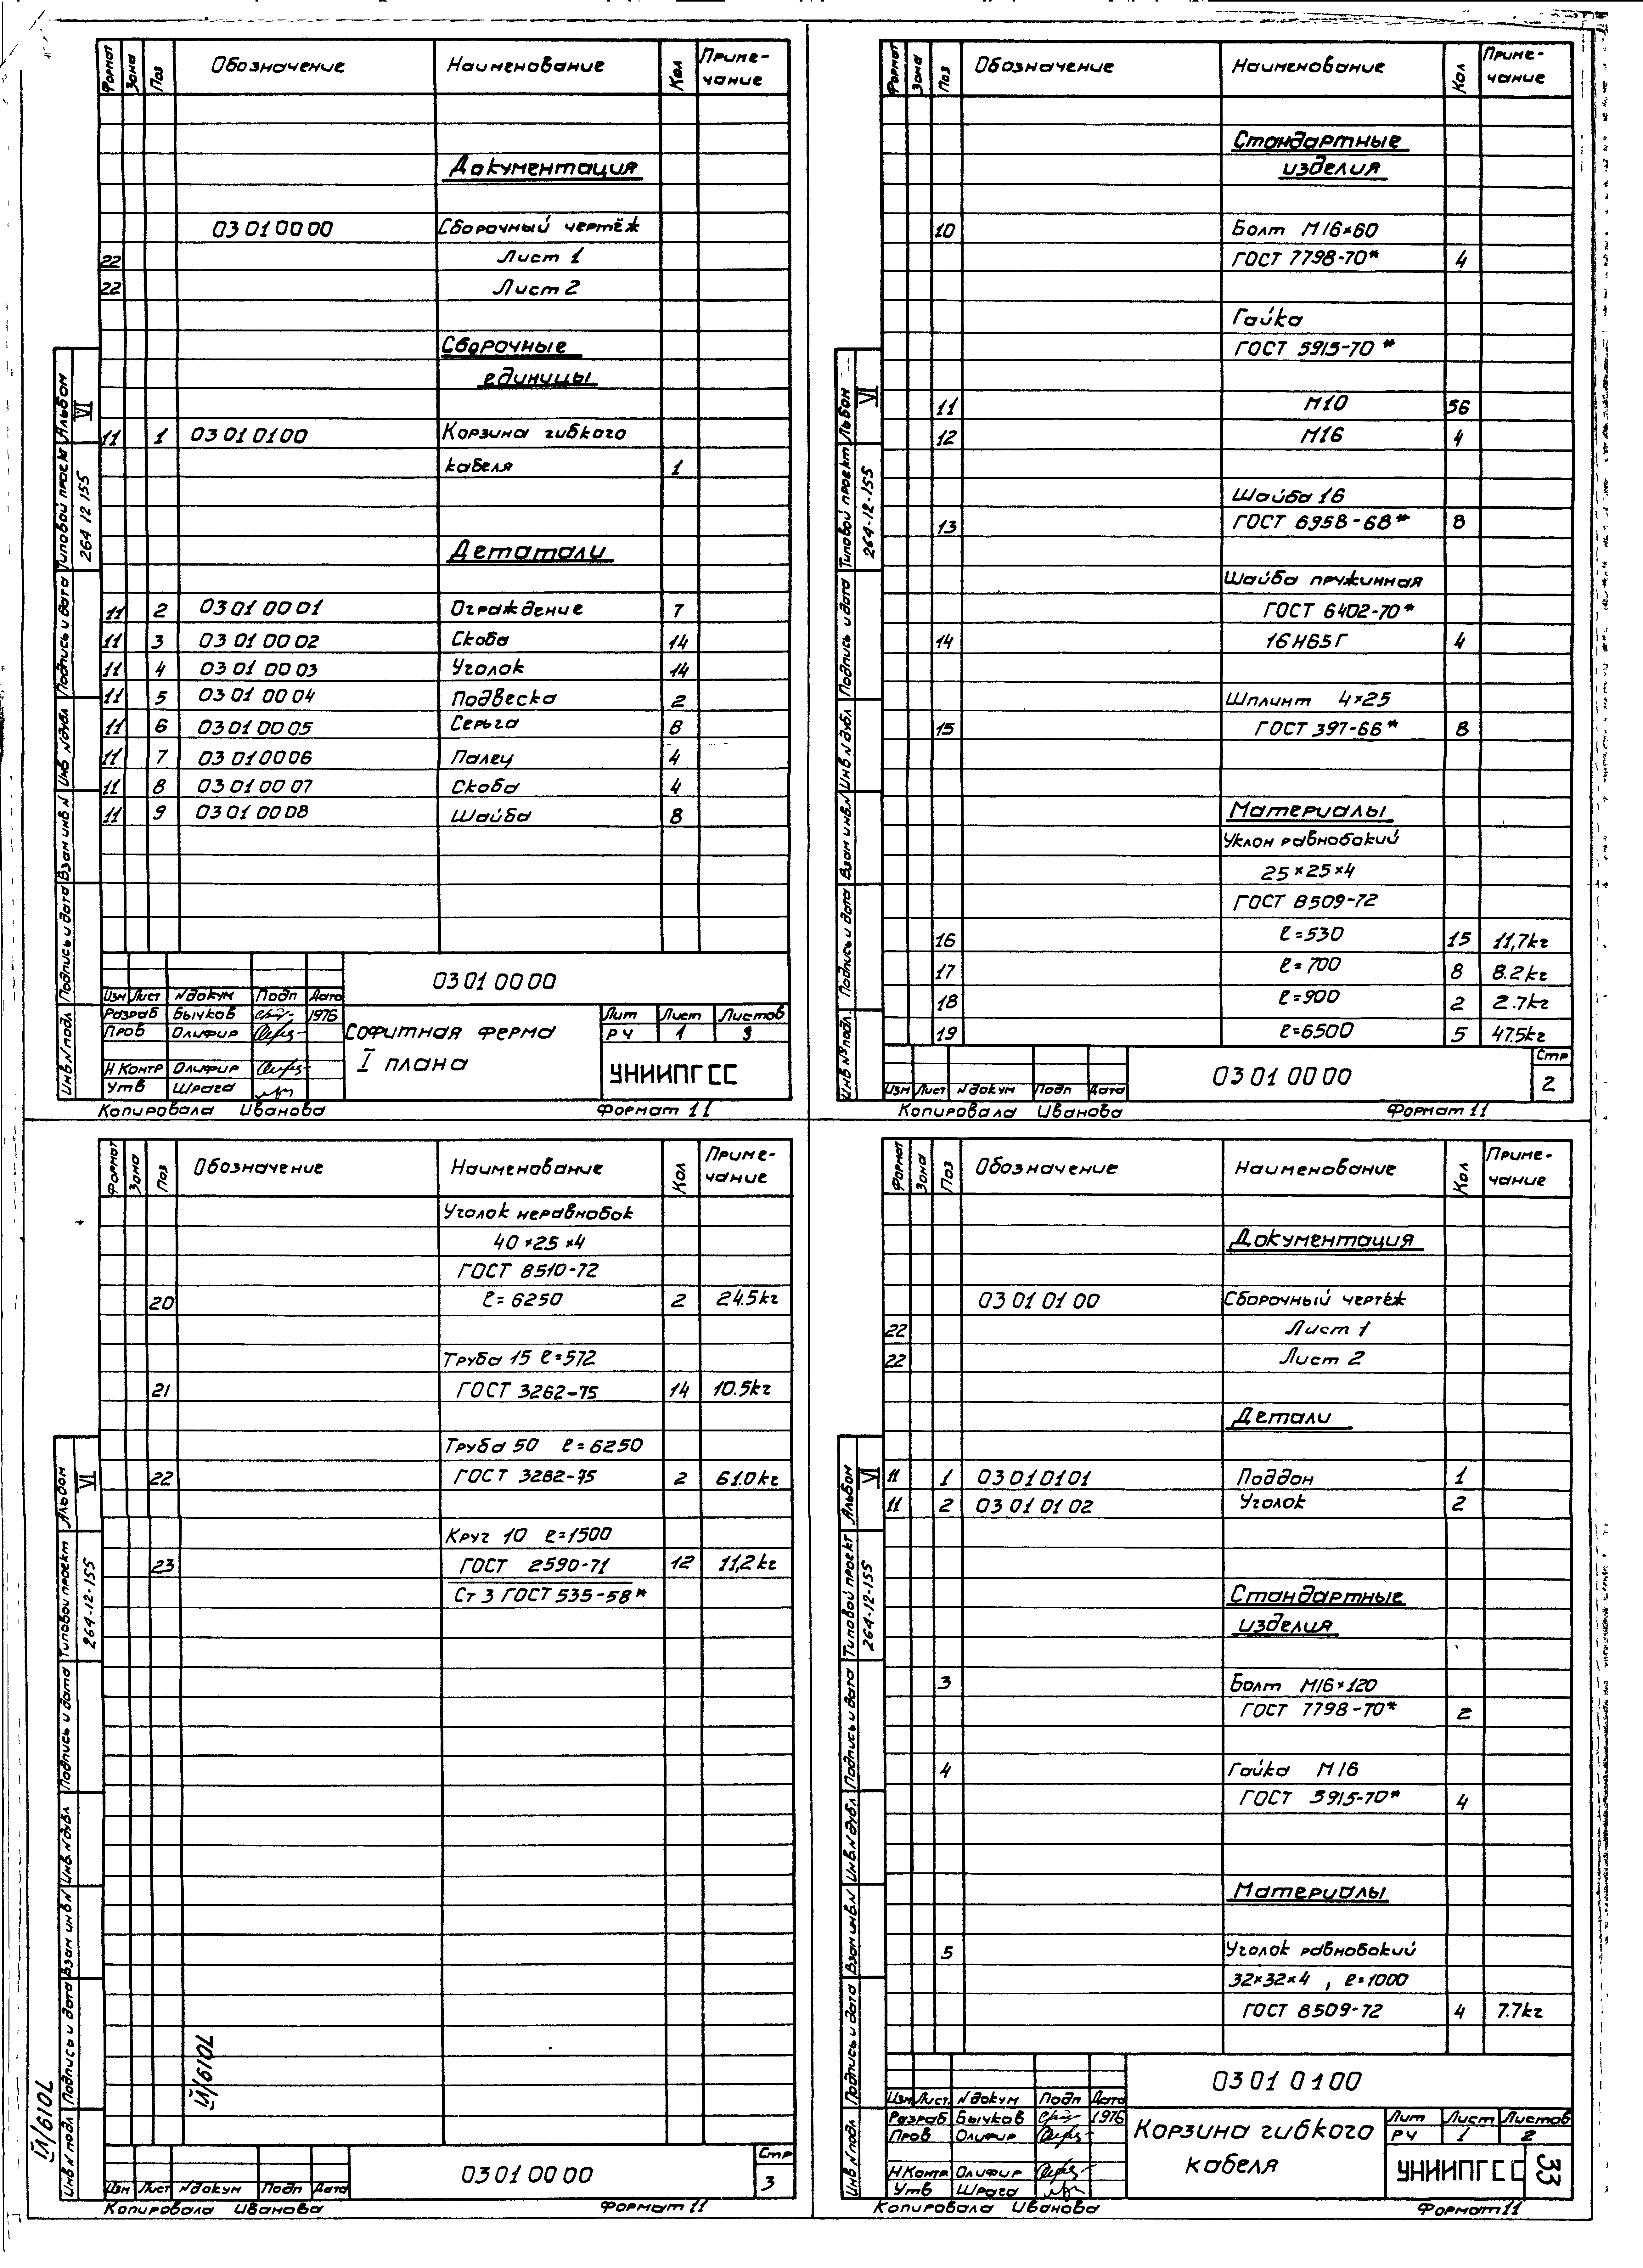 Формат Зона Поз Обозначение Наименование Кол Приме-
чание
Документация
03 01 00 00 Сборочный чертёж
22 Лист 1
22 Лист 2
Сборочные
единицы
11 1 03 01 01 00 Корзина гибкого
кабеля 1
Детатали
11 2 03 01 00 01 Ограждение 7
11 3 03 01 00 02 Скоба 14
11 4 03 01 00 03 Уголок 14
11 5 03 01 00 04 Подвеска 2
11 6 03 01 00 05 Серьга 8
11 7 03 01 00 06 Палец 4
11 8 03 01 00 07 Скоба 4
11 9 03 01 00 08 Шайба 8
Альбом VI
Типовой проект 264 12 155
Подпись и дата
Инв N дубл
Взам инв. N
Подпись и дата
Инв N подл
03 01 00 00
Изм Лист N докум Подп Дата
Разраб Бычков 1976
Пров Олифир
Н Контр Олифир
Утв Шрага
Софитная ферма
I плана
Лит Лист Листов
РЧ 1 3
УНИИПГСС
Копировала Иванова Формат 11
Формат Зона Поз Обозначение Наименование Кол Приме-
чание
Стандартные
изделия
10 Болт М16×60
ГОСТ 7798-70* 4
Гайка
ГОСТ 5915-70*
11 М10 56
12 М16 4
Шайба 16
13 ГОСТ 6958-68* 8
Шайба пружинная
ГОСТ 6402-70*
14 16Н65Г 4
Шплинт 4×25
15 ГОСТ 397-66* 8
Материалы
Уклон равнобокий
25×25×4
ГОСТ 8509-72
16 ℓ=530 15 11,7кг
17 ℓ=700 8 8.2кг
18 ℓ=900 2 2.7кг
19 ℓ=6500 5 47.5кг
льбом VI
Типовой проект 264-12-155
Подпись и дата
Инв N дубл
Взам инв. N
Подпись и дата
Инв № подл.
Изм Лист N докум Подп Дата
03 01 00 00
Стр
2
Копировала Иванова Формат 11
Формат Зона Поз Обозначение Наименование Кол Приме-
чание
Уголок неравнобок
40×25×4
ГОСТ 8510-72
20 ℓ=6250 2 24.5кг
Труба 15 ℓ=572
21 ГОСТ 3262-75 14 10.5кг
Труба 50 ℓ=6250
22 ГОСТ 3262-75 2 61.0кг
Круг 10 ℓ=1500
23 ГОСТ 2590-71 12 11,2кг
Ст 3 ГОСТ 535-58*
Альбом VI
Типовой проект 264-12-155
Подпись и дата
Инв. N дубл
Взам инв N
Подпись и дата
Инв N подл
7019/VI
7019/VI
Изм Лист N докум Подп Дата
03 01 00 00
Стр
3
Копировала Иванова Формат 11
Формат Зона Поз Обозначение Наименование Кол Приме-
чание
Документация
03 01 01 00 Сборочный чертёж
22 Лист 1
22 Лист 2
Детали
11 1 03 01 01 01 Поддон 1
11 2 03 01 01 02 Уголок 2
Стандартные
изделия
3 Болт М16×120
ГОСТ 7798-70* 2
4 Гайка М16
ГОСТ 5915-70* 4
Материалы
5 Уголок равнобокий
32×32×4 , ℓ=1000
ГОСТ 8509-72 4 7.7кг
Альбом VI
Типовой проект 264-12-155
Подпись и дата
Инв. N дубл
Взам инв. N
Подпись и дата
Инв N подл
03 01 01 00
Изм Лист. N докум Подп Дата
Разраб Бычков 1976
Пров Олифир
Н Контр Олифир
Утв Шрага
Корзина гибкого
кабеля
Лит Лист Листов
РЧ 1 2
УНИИПГСС 33
Копировала Иванова Формат 11